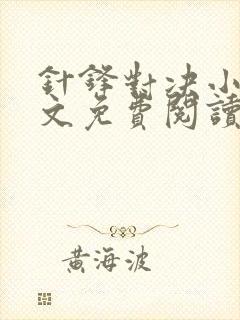 針鋒對决小
文免費閱讀
黃海波